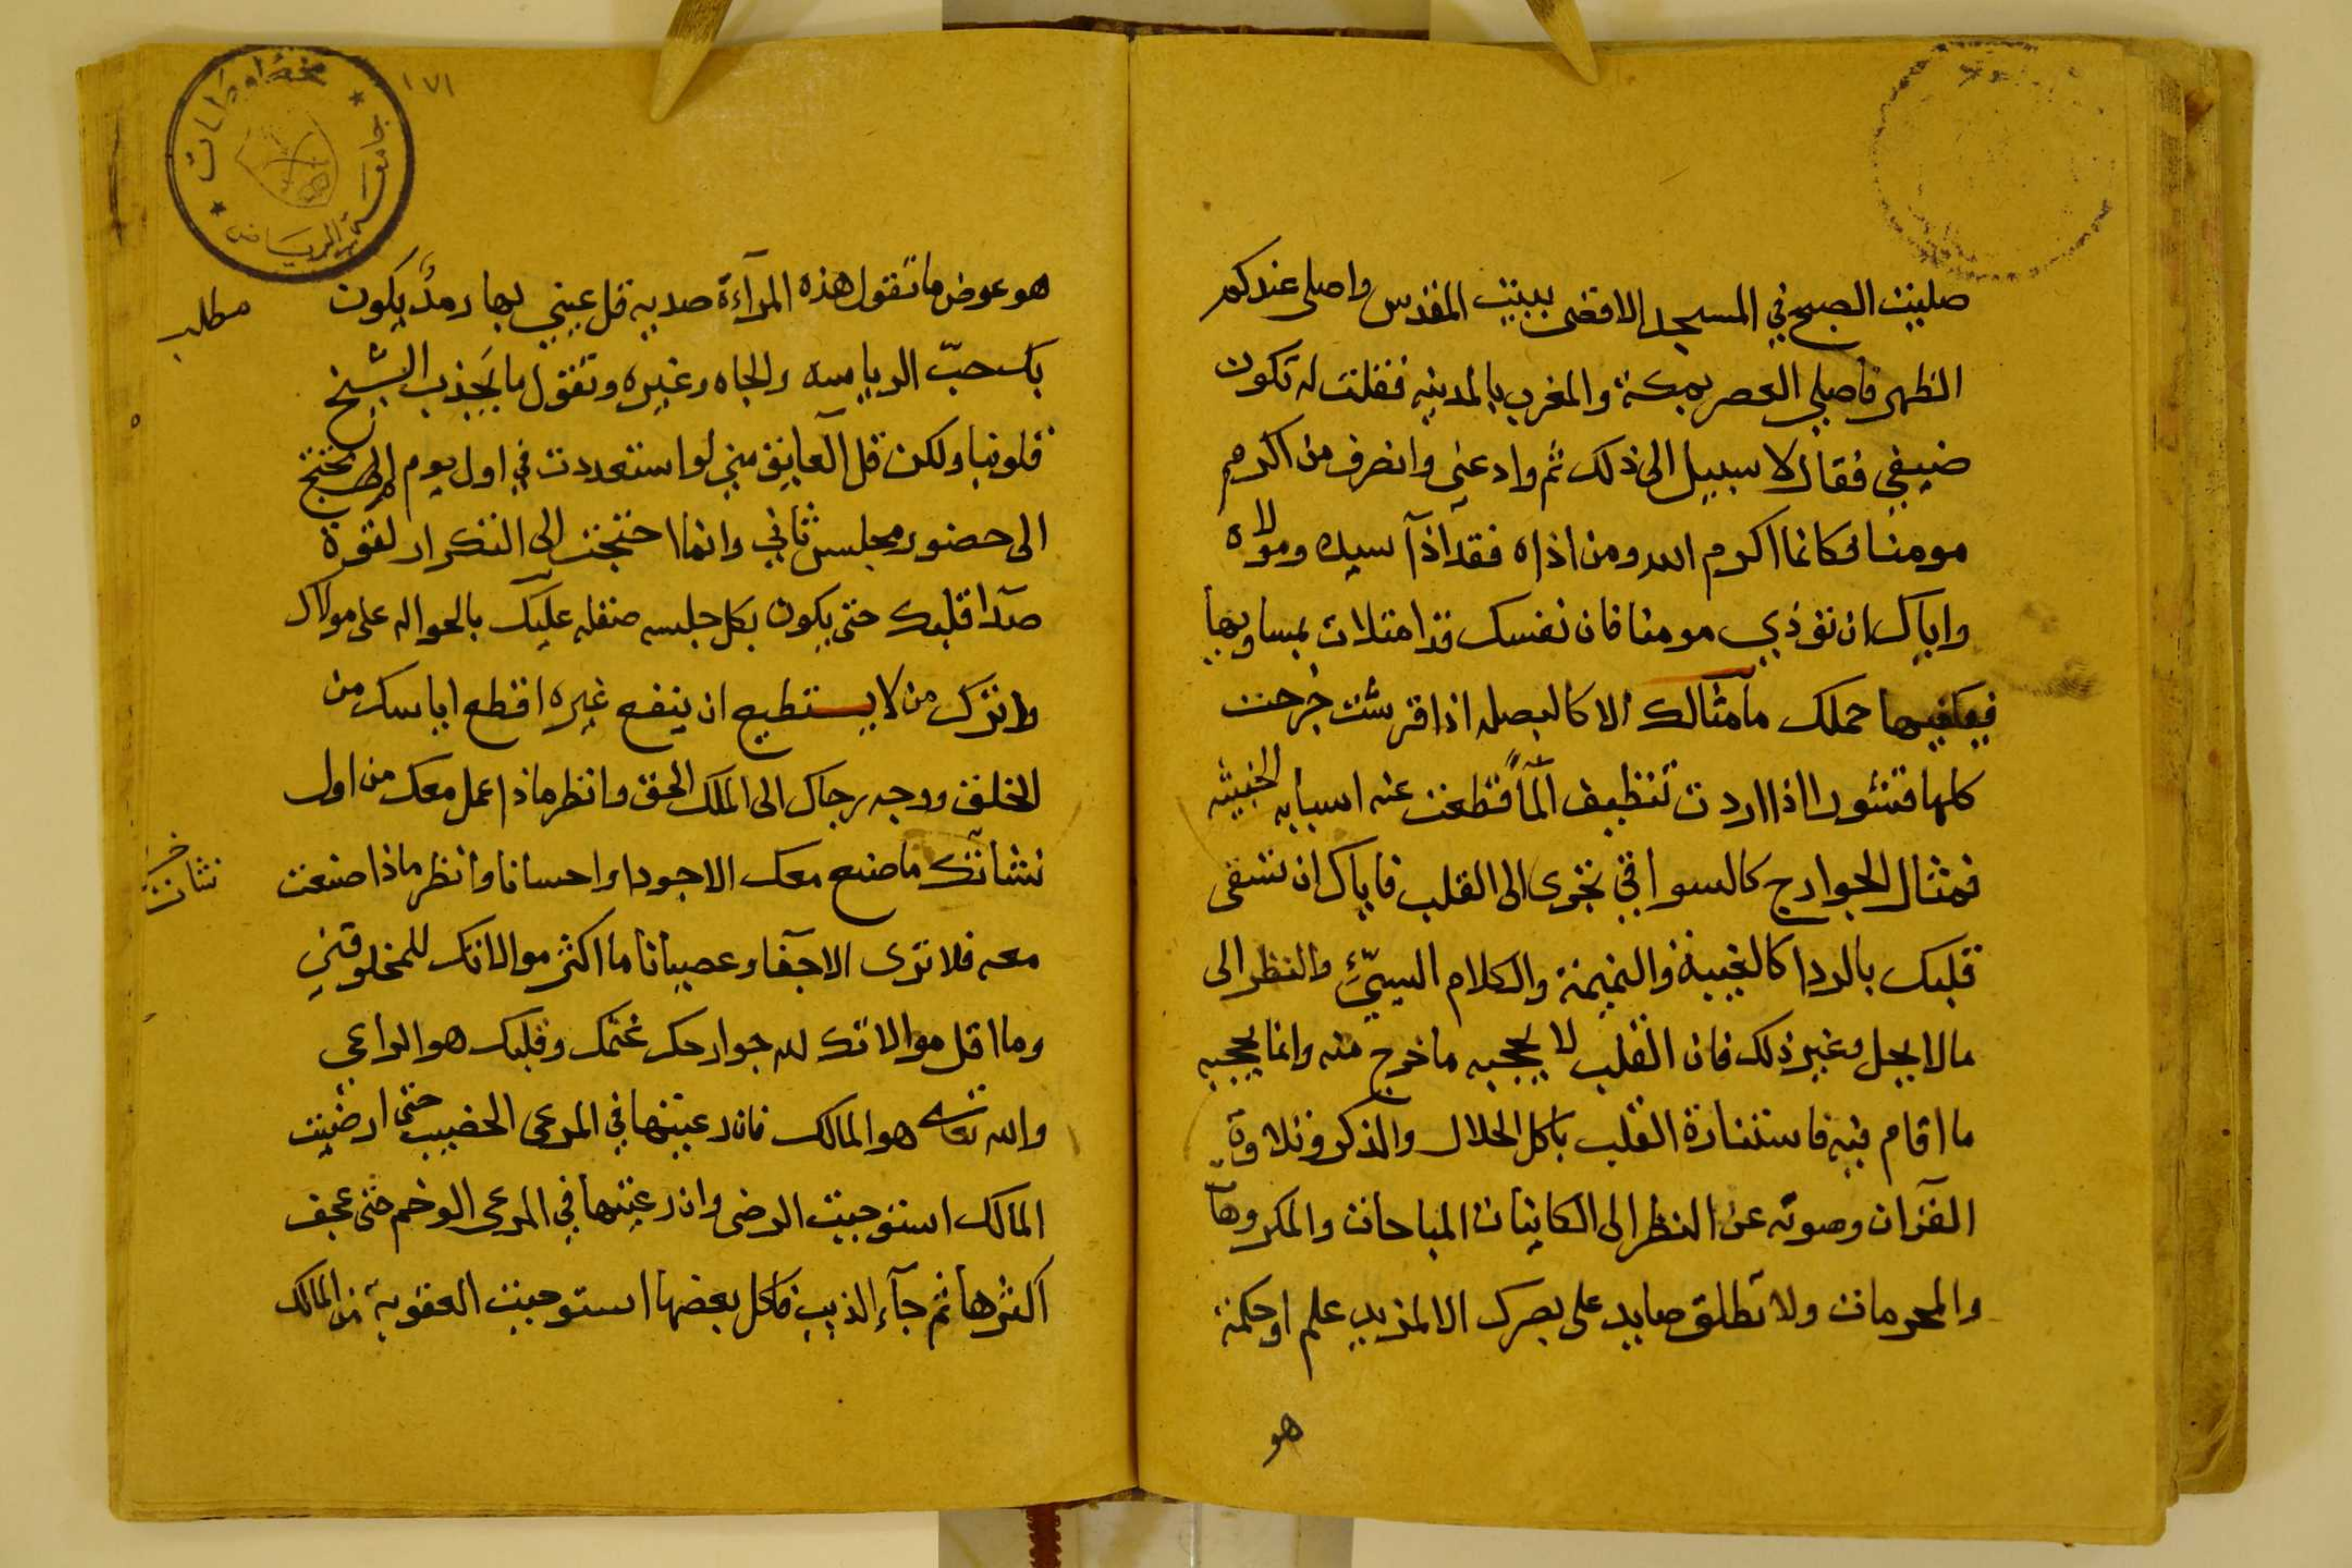 صليت الصبح في المسجد الاقصى ببيت المقدس واصلي عندكم
الظهر فاصلي العصر بمكة والمغرب بالمدينه فقلت له تكون
ضيفي فقال لا سبيل الى ذلك ثم وادعني وانصرف من اكرم
مومنا فكانما اكرم الله ومن اذاه فقد آذآ سيده ومولاه
واياك ان تؤذي مومنا فان نفسك قد امتلات بمساويها
فيكفيها حملك ما مثالك الا كالبصله اذا قرشت خرجت
كلها قشورا اذا اردت تنظيف المآ قطعت عنه اسبابه الخبيثه
فمثال الجوارح كالسواقي تجرى الى القلب فاياك ان تسقى
قلبك بالردا كالغيبة والنميمة والكلام السيئ والنظر الى
مالا يحل وغير ذلك فان القلب لا يحجبه ما خرج منه وانما يحجبه
ما اقام فيه فاستنارة القلب باكل الحلال والذكر وتلاوة
القرآن وصونه عن النظر الى الكاينات المباحات والمكروهات
والمحرمات ولا تطلق صايد على بصرك الا لمزيد علم او حكمة
هو
١٧١
مخطوطات
جامعة الرياض
هو عوض ما تقول هذه المرآءة صديه قل عيني بها رمد يكون
مطلب
بك حب الرياسه والجاه وغيره وتقول ما يجذب الشيخ
قلوبنا ولكن قل العايق مني لو استعددت في اول يوم لم تحتج
الى حضور مجلس ثاني وانما احتجت الى التكرار لقوة
صدآ قلبك حتى يكون بكل جلسه صقله عليك بالحواله على مولاك
واترك من لا يستطيع ان ينفع غيره اقطع اياسك من
الخلق ووجه رجاك الى الملك الحق وانظر ماذا عمل معك من اول
نشاتك ما صنع معك الا جودا واحسانا وانظر ماذا صنعت
نشاتك
معه فلا ترى الا جفا وعصيانا ما اكثر موالاتك للمخلوقين
وما اقل موالاتك لله جوارحك غنمك وقلبك هو الراعي
والله تعالى هو المالك فان رعيتها في المرعى الخصيب حتى ارضيت
المالك استوجبت الرضى وان رعيتها في المرعى الوخم حتى عجف
اكثرها ثم جآء الذيب فاكل بعضها استوجبت العقوبة من المالك